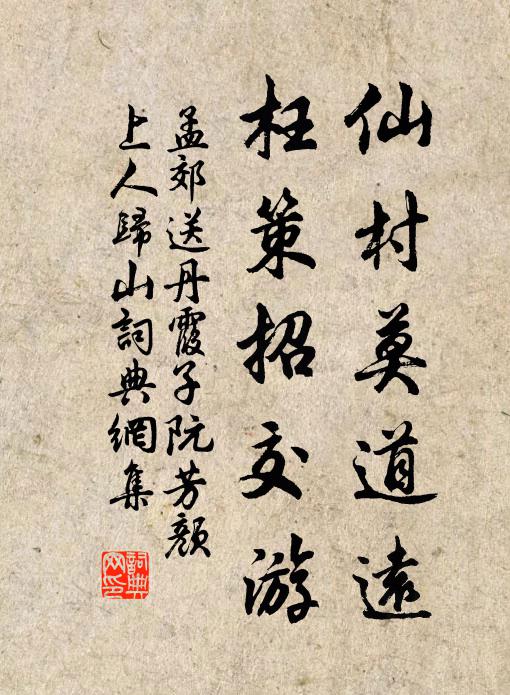 仙村莫道遠
枉策招交游
孟郊送丹霞子阮芳顏
上人歸山詞典網集
詞典
網印